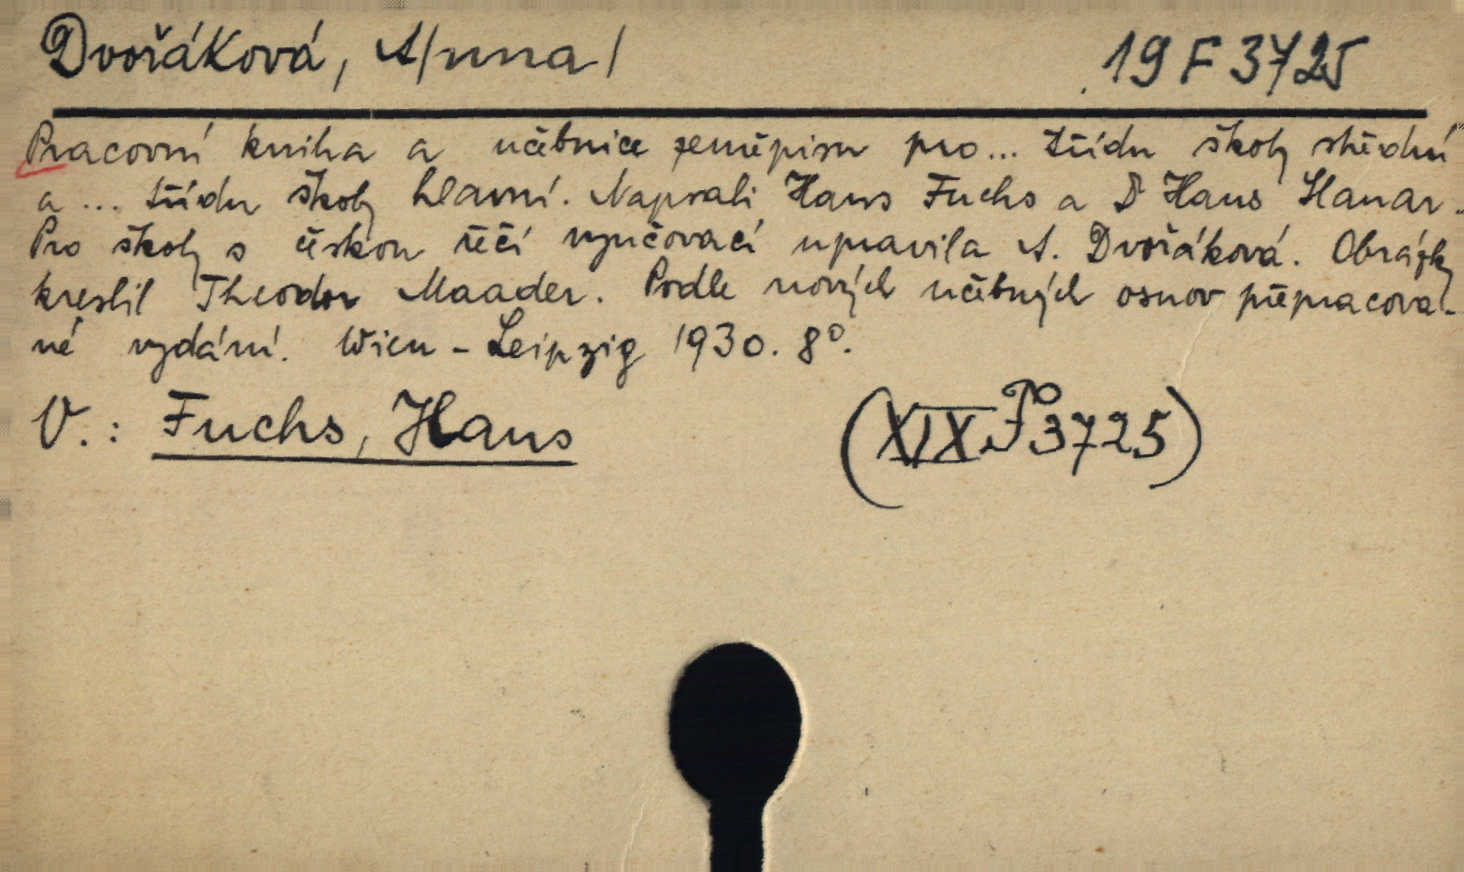 Dvořáková, A/nna/ 19 F 3725
Pracovní kniha a učebnice zeměpisu pro... třídu školy střední
a ... třídu školy hlavní. Napsali Hans Fuchs a Dr Hans Slanar.
Pro školy s českou řečí vyučovací upravila A. Dvořáková. Obrázky
kreslil Theodor Maader. Podle nových učebných osnov přepracova-
né vydání. Wien - Leipzig 1930. 8°.
V.: Fuchs, Hans (XIX F 3725)